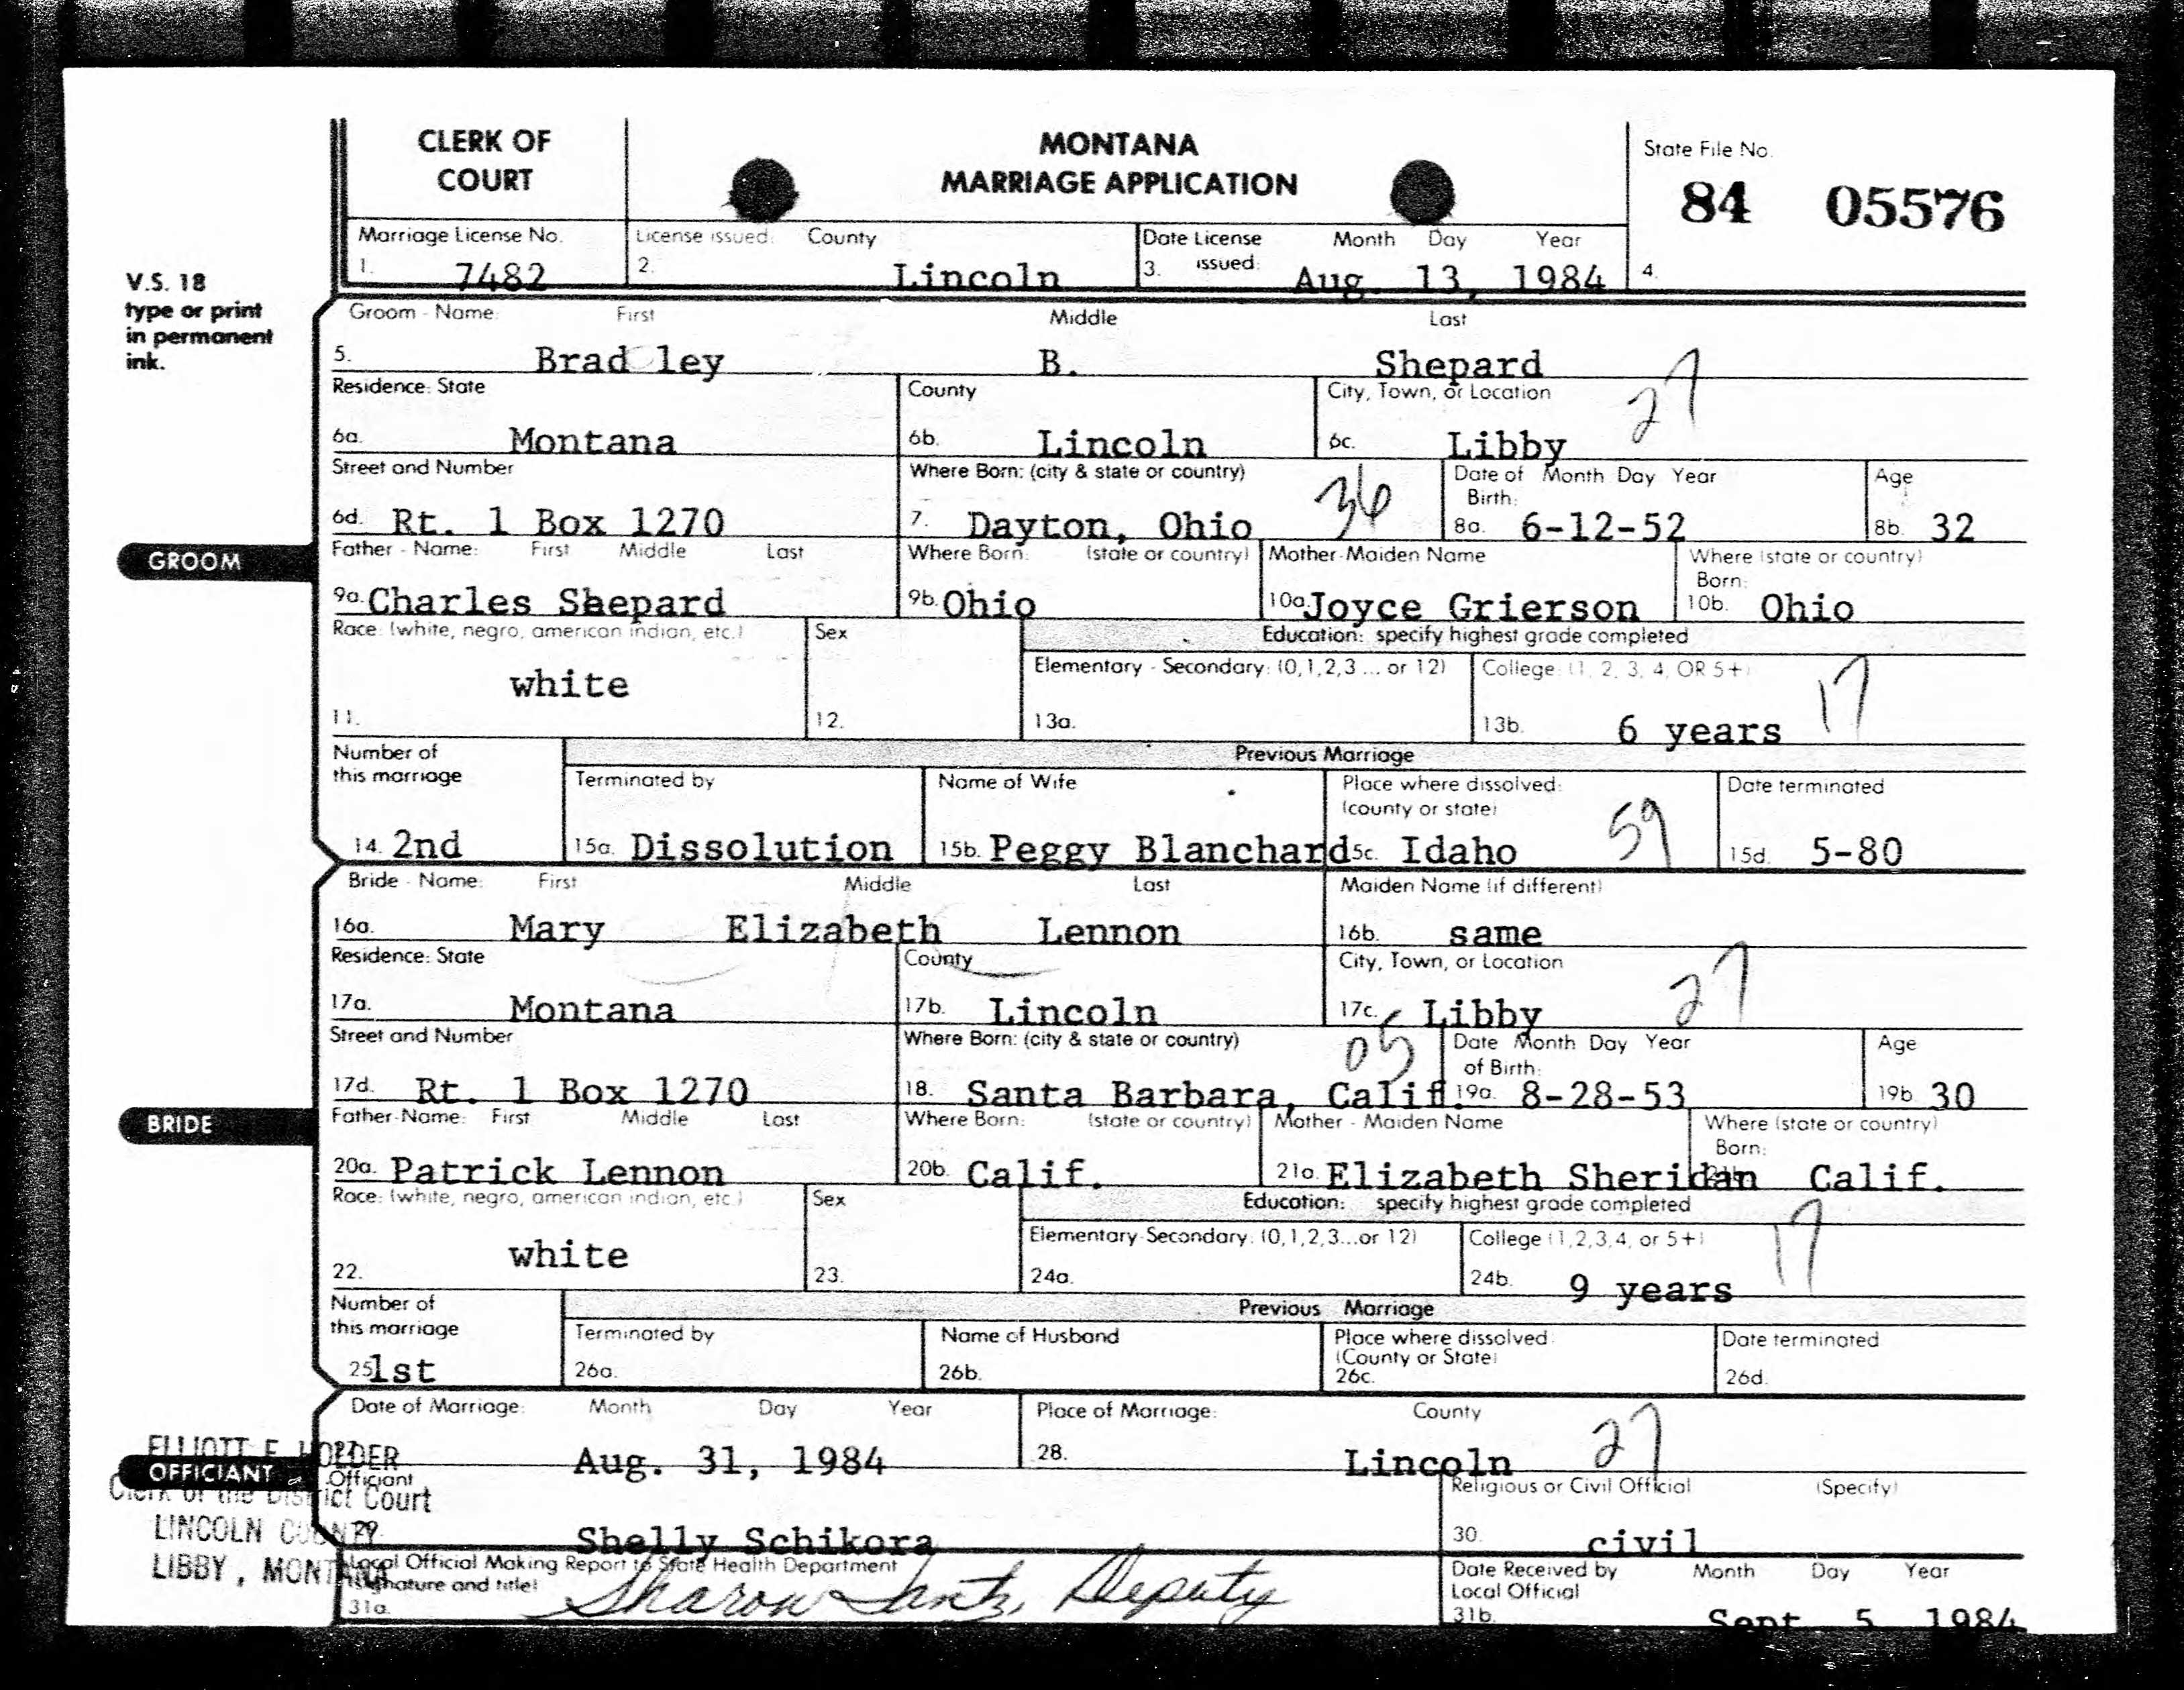 CLERK OF COURT
MONTANA MARRIAGE APPLICATION
State File No.
84 05576
4.
Marriage License No.
1. 7482
License issued: County
2. Lincoln
Date License issued: Month Day Year
3. Aug. 13, 1984
V.S. 18
type or print
in permanent
ink.
GROOM
Groom - Name: First Middle Last
5. Brad ley B. Shepard
27
Residence: State County City, Town, or Location
6a. Montana 6b. Lincoln 6c. Libby
Street and Number Where Born: (city & state or country) Date of Birth: Month Day Year Age
6d. Rt. 1 Box 1270 7. Dayton, Ohio 36 8a. 6-12-52 8b. 32
Father - Name: First Middle Last Where Born: (state or country) Mother-Maiden Name Where (state or country) Born:
9a. Charles Shepard 9b. Ohio 10a. Joyce Grierson 10b. Ohio
Race: (white, negro, american indian, etc.) Sex Education: specify highest grade completed
Elementary - Secondary: (0,1,2,3 ... or 12) College: (1, 2, 3, 4, OR 5+)
white
11. 12. 13a. 13b. 6 years 17
Number of this marriage Previous Marriage
Terminated by Name of Wife Place where dissolved: (county or state) Date terminated
14. 2nd 15a. Dissolution 15b. Peggy Blanchard 5c. Idaho 59 15d. 5-80
BRIDE
Bride - Name: First Middle Last Maiden Name (if different)
16a. Mary Elizabeth Lennon 16b. same
Residence: State County City, Town, or Location
17a. Montana 17b. Lincoln 17c. Libby 27
Street and Number Where Born: (city & state or country) Date of Birth: Month Day Year Age
17d. Rt. 1 Box 1270 18. Santa Barbara, Calif. 05 19a. 8-28-53 19b. 30
Father-Name: First Middle Last Where Born: (state or country) Mother - Maiden Name Where (state or country) Born:
20a. Patrick Lennon 20b. Calif. 21a. Elizabeth Sheridan 21b. Calif.
Race: (white, negro, american indian, etc.) Sex Education: specify highest grade completed
Elementary-Secondary: (0,1,2,3...or 12) College (1,2,3,4, or 5+)
white
22. 23. 24a. 24b. 9 years 17
Number of this marriage Previous Marriage
Terminated by Name of Husband Place where dissolved: (County or State) Date terminated
25. 1st 26a. 26b. 26c. 26d.
OFFICIANT
Date of Marriage: Month Day Year Place of Marriage: County
27. Aug. 31, 1984 28. Lincoln 27
Officiant Religious or Civil Official (Specify)
29. Shelly Schikora 30. civil
ELLIOTT E HOLDER
Clerk of the District Court
LINCOLN COUNTY
LIBBY, MONTANA
Local Official Making Report to State Health Department
(Signature and title) Date Received by Local Official Month Day Year
31a. Sharon Lantz, Deputy 31b. Sept 5 1984